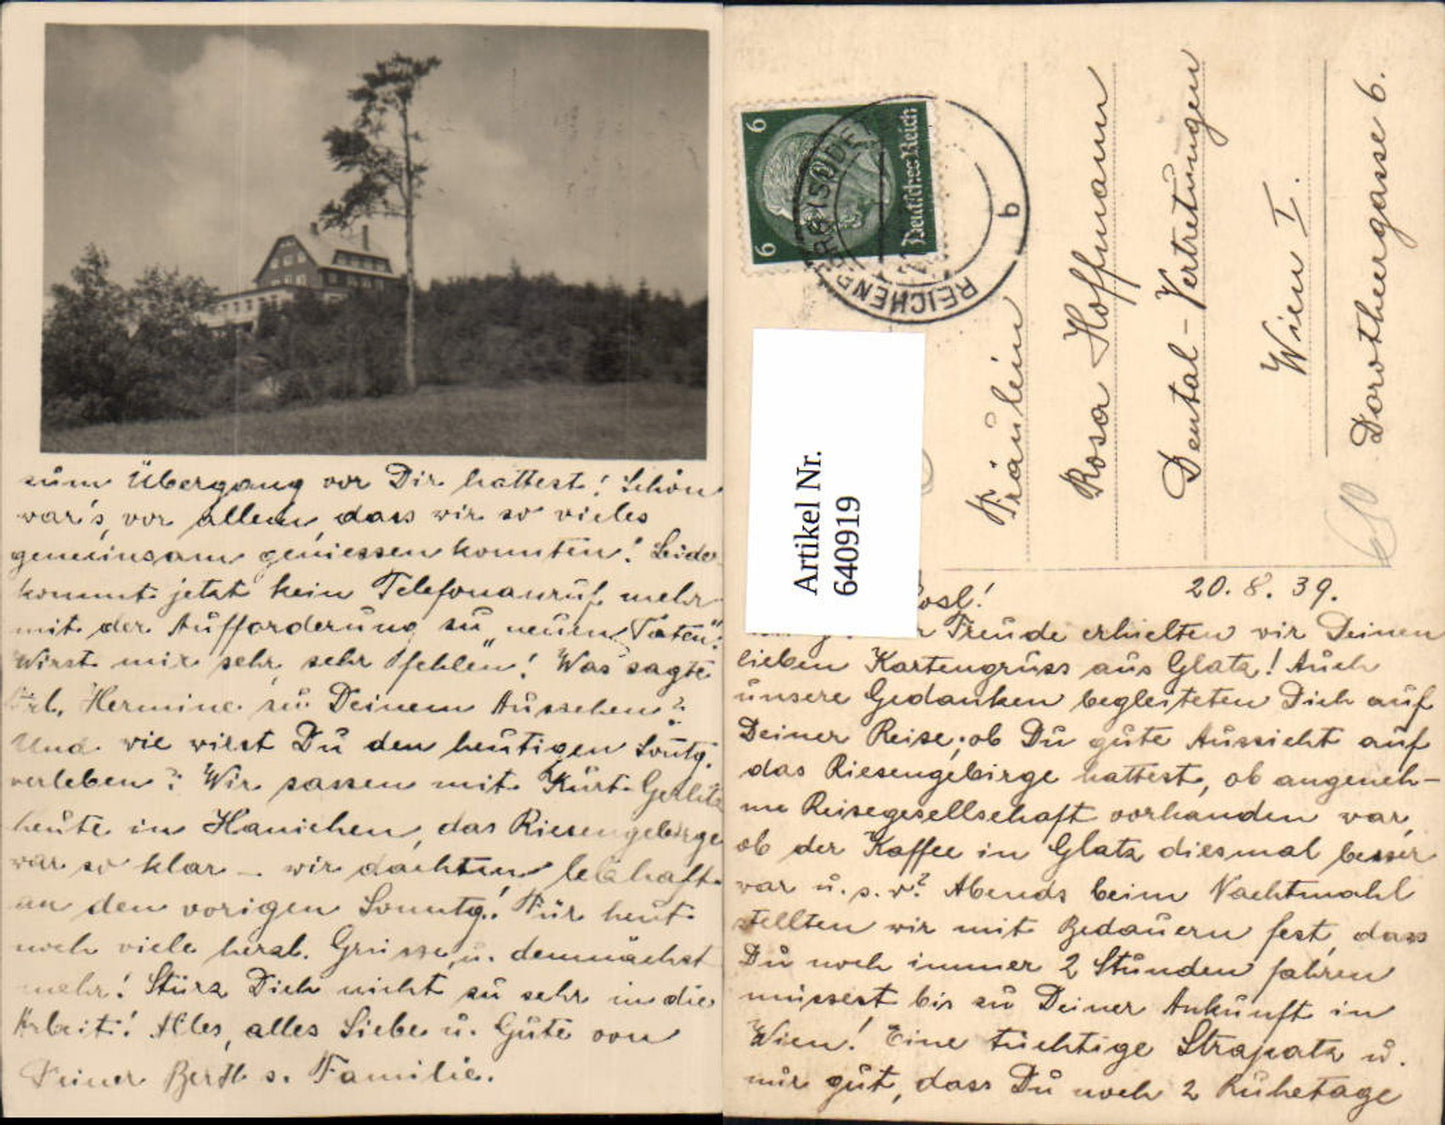 6
6
Deutsches Reich
REICHENBERG
b
Fräulein
Rosa Hoffmann
Dental-Vertretungen
Wien I.
Dorotheergasse 6.
Artikel Nr.
640919
20. 8. 39.
osl!
Freude erhielten wir Deinen
lieben Kartengruss aus Glatz! Auch
unsere Gedanken begleiteten Dich auf
Deiner Reise; ob Du gute Aussicht auf
das Riesengebirge hattest, ob angeneh-
me Reisegesellschaft vorhanden war,
ob der Kaffee in Glatz diesmal besser
war u. s. w? Abends beim Nachtmahl
stellten wir mit Bedauern fest, dass
Du noch immer 2 Stunden fahren
müssest bis zu Deiner Ankunft in
Wien! Eine tüchtige Strapatz u.
nur gut, dass Du noch 2 Ruhetage
zum Übergang vor Dir hattest! Schön
war's, vor allem, dass wir so vieles
gemeinsam geniessen konnten! Leider
kommt jetzt kein Telefonanruf mehr
mit der Aufforderung zu „neuen Taten".
Wirst mir sehr, sehr fehlen! Was sagte
Frl. Hermine zu Deinem Aussehen?
Und wie wirst Du den heutigen Sontg.
verleben? Wir sassen mit Kurt
heute in Hanichen, das Riesengebirge
war so klar – wir dachten lebhaft
an den vorigen Sonntg.! Für heut
noch viele herzl. Grüsse, u. demnächst
mehr! Stürz Dich nicht zu sehr in die
Arbeit! Alles, alles Liebe u. Gute von
Deiner Bertl s. Familie.